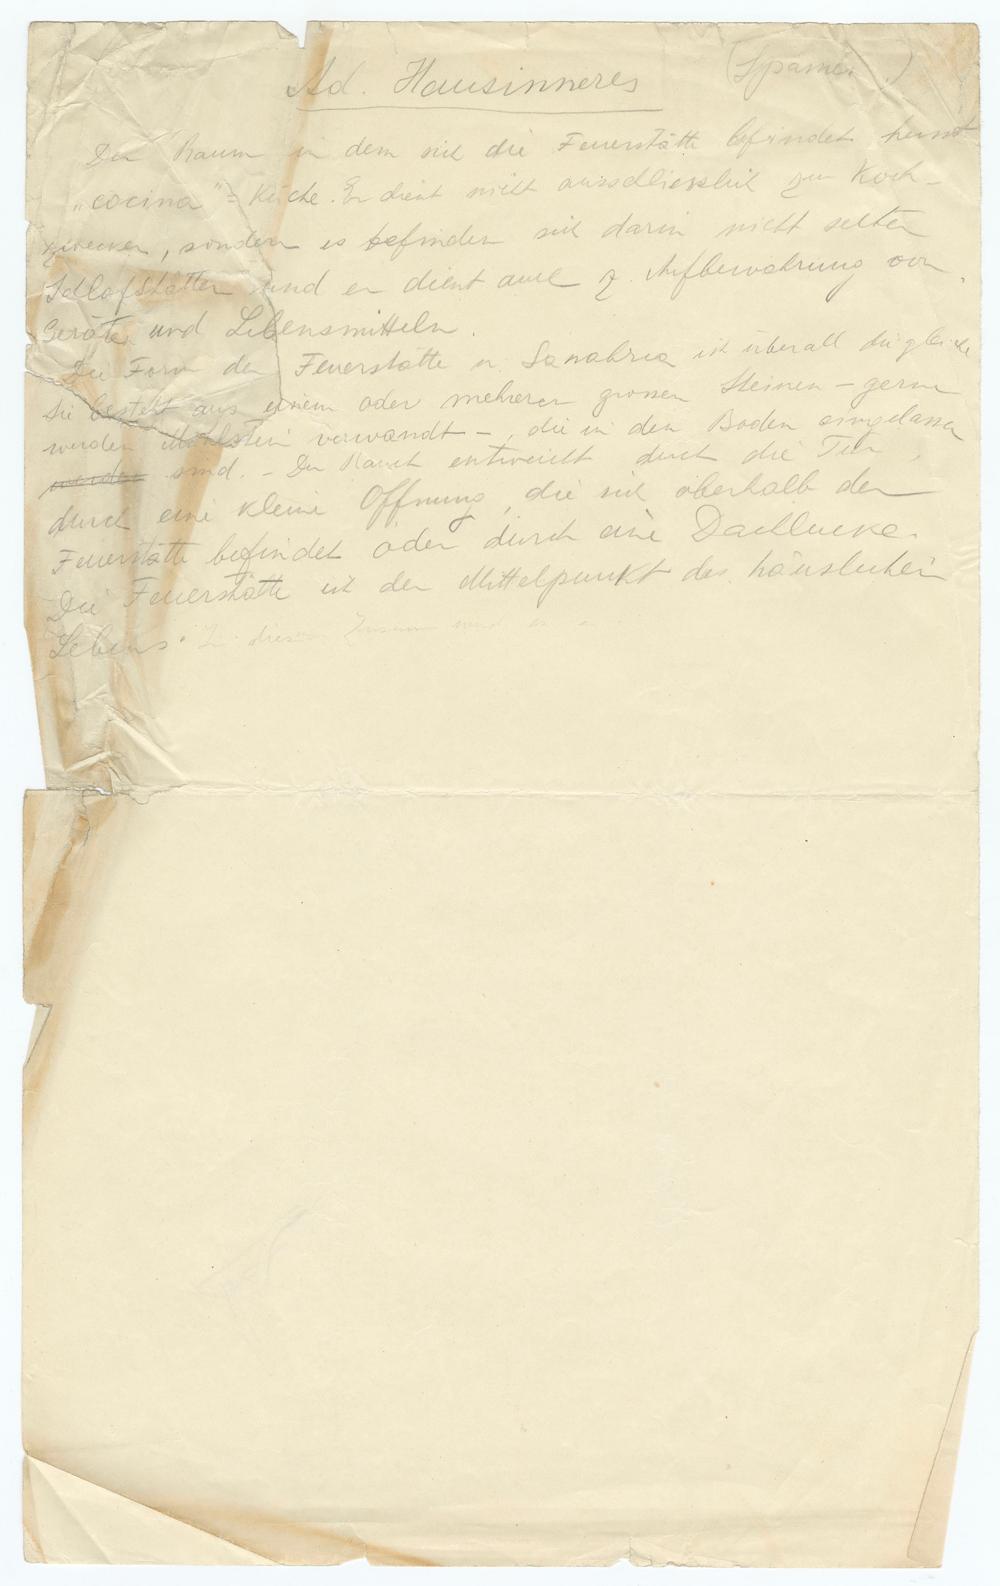 Ad. Hausinneres
Der Raum in dem sich die Feuerstätte befindet heisst
„cocina" = Küche. Er dient nicht ausschliesslich zu Koch-
zwecken, sondern es befinden sich darin nicht selten
Schlafstätten und er dient auch z. Aufbewahrung von
Geräten und Lebensmitteln.
Die Form der Feuerstätte in Sanabria ist überall die gleiche
Sie besteht aus einem oder mehreren grossen Steinen – gern
werden Mühlsteine verwandt –, die in den Boden eingelassen
werden sind. – Der Rauch entweicht durch die Tür,
durch eine kleine Öffnung, die sich oberhalb der
Feuerstätte befindet oder durch eine Dachlucke.
Die Feuerstätte ist der Mittelpunkt des häuslichen
Lebens. In diesem